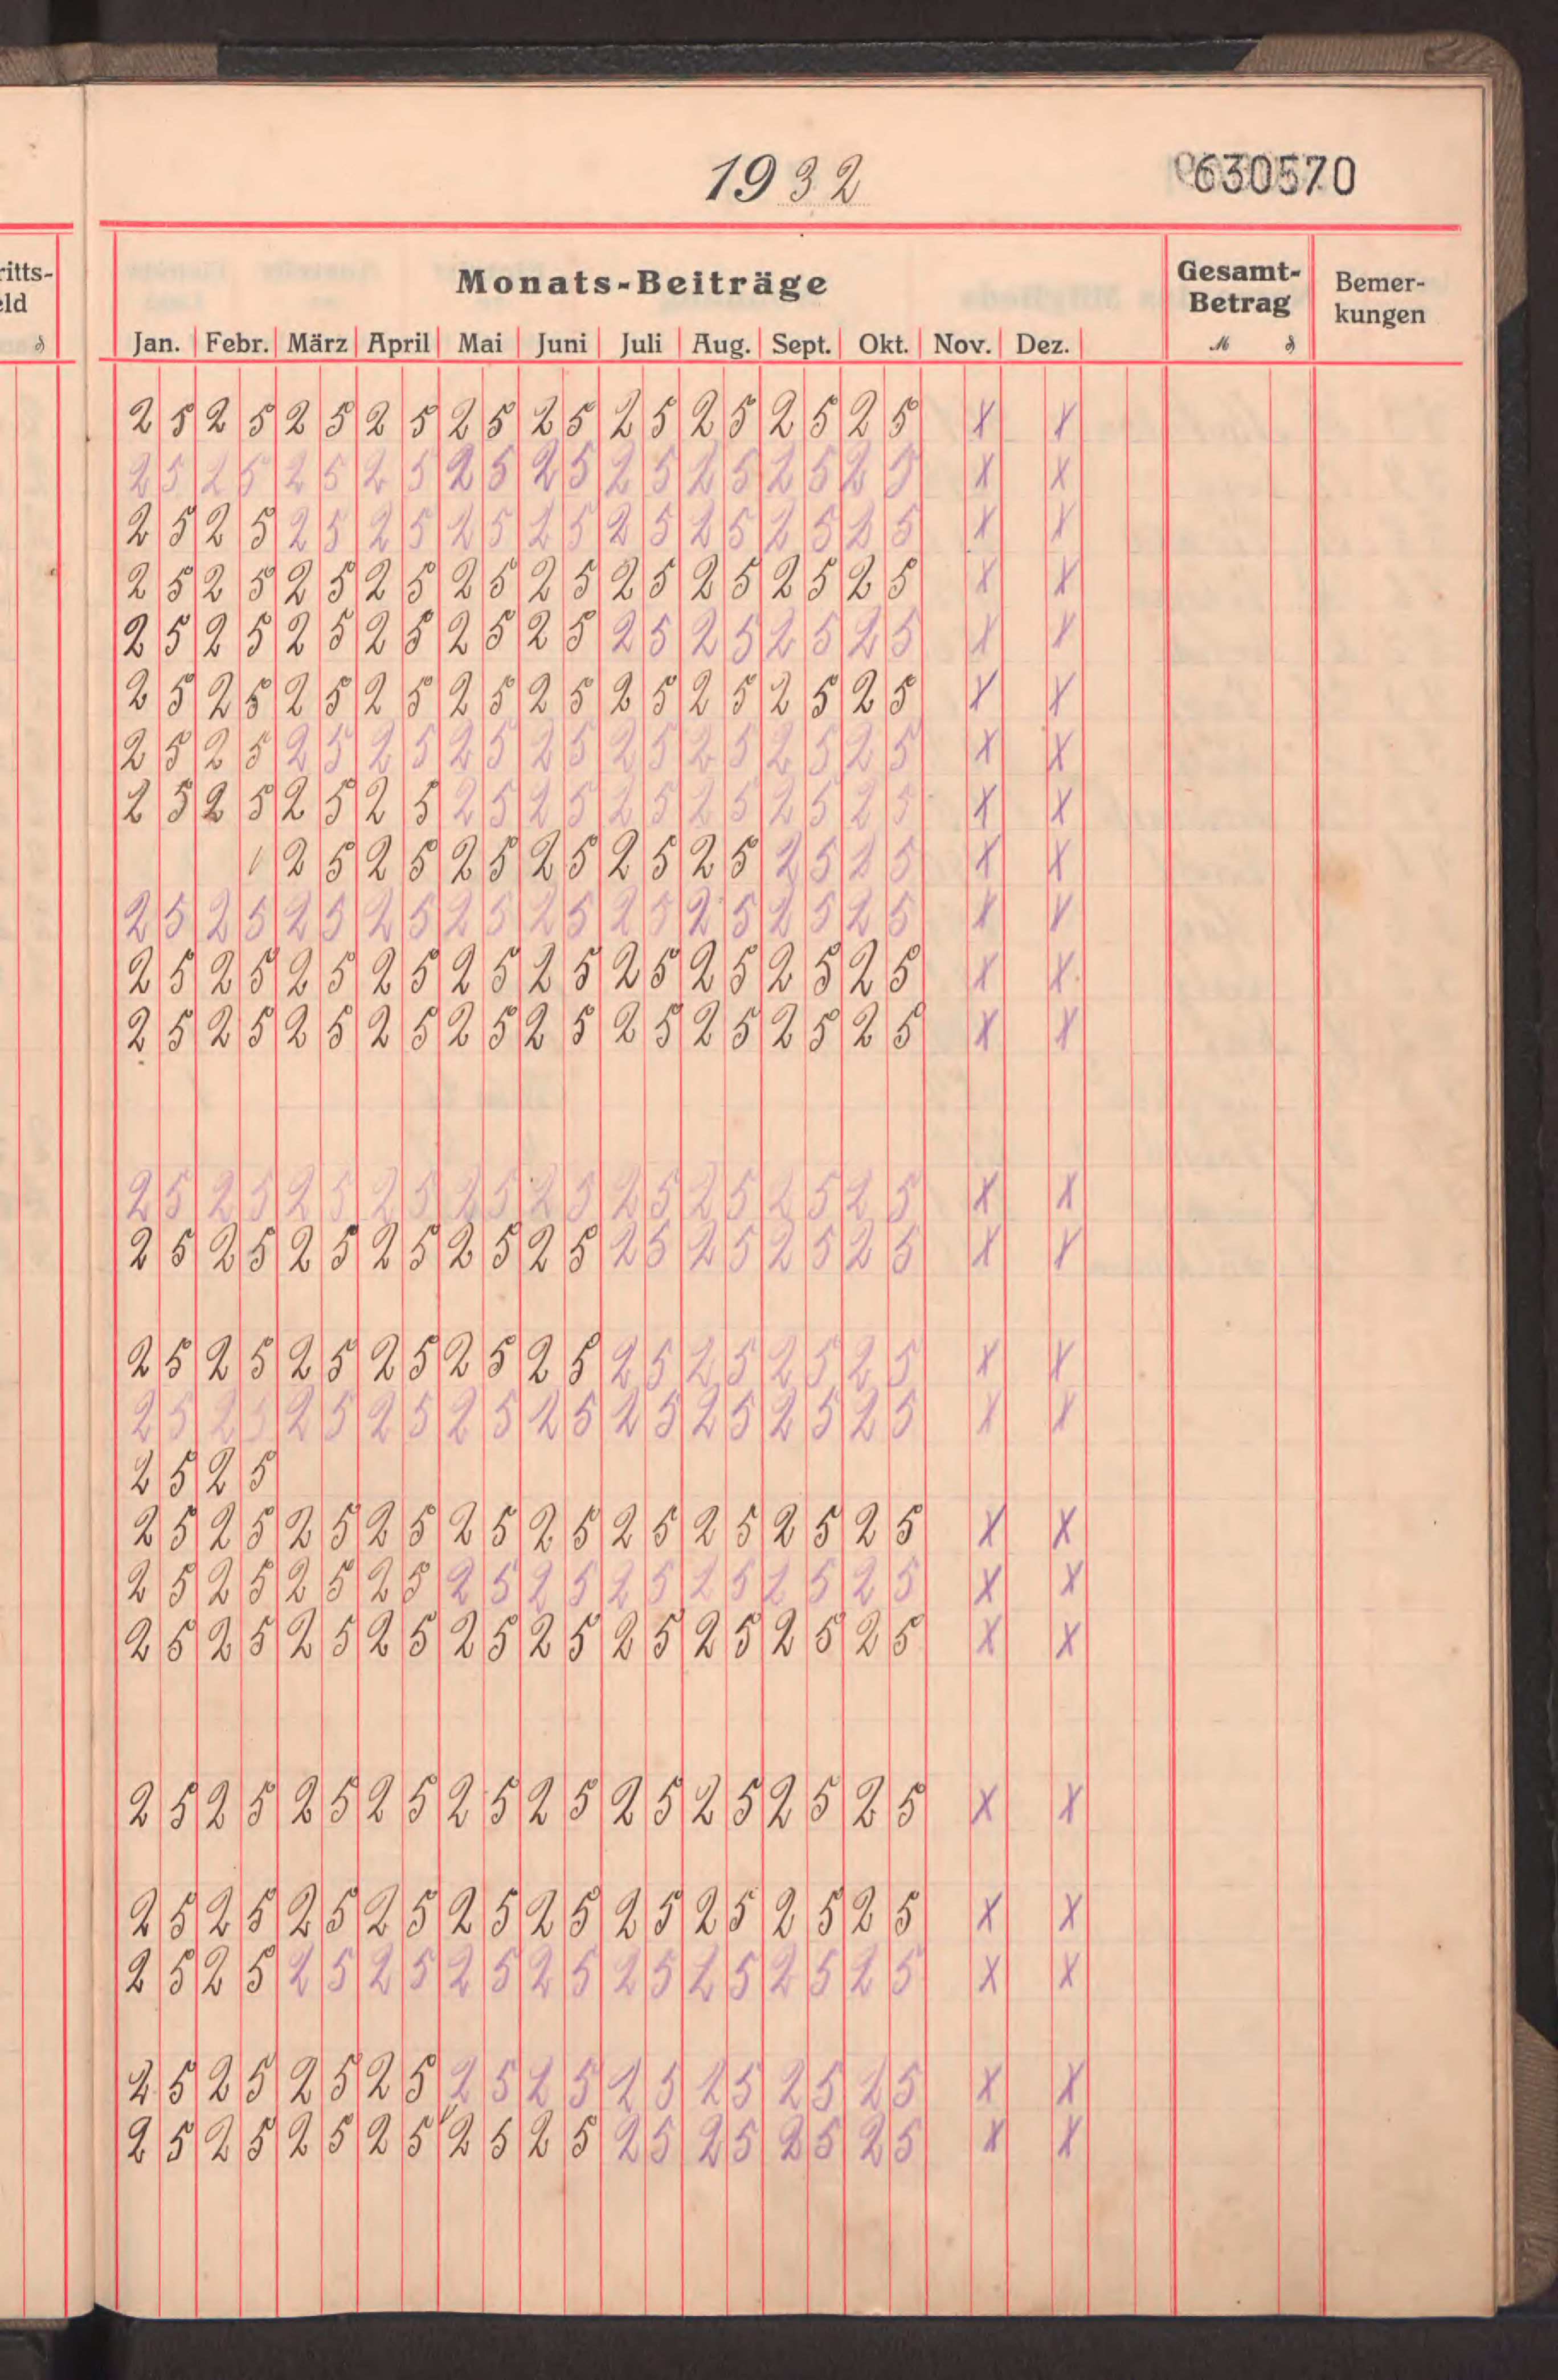 1932
0630570
ritts-
eld
₰
Monats-Beiträge
Gesamt-
Betrag
ℳ ₰
Bemer-
kungen
Jan. Febr. März April Mai Juni Juli Aug. Sept. Okt. Nov. Dez.
25 25 25 25 25 25 25 25 25 25 X X
25 25 25 25 25 25 25 25 25 25 X X
25 25 25 25 25 25 25 25 25 25 X X
25 25 25 25 25 25 25 25 25 25 X X
25 25 25 25 25 25 25 25 25 25 X X
25 25 25 25 25 25 25 25 25 25 X X
25 25 25 25 25 25 25 25 25 25 X X
25 25 25 25 25 25 25 25 25 25 X X
25 25 25 25 25 25 25 25 X X
25 25 25 25 25 25 25 25 25 25 X X
25 25 25 25 25 25 25 25 25 25 X X
25 25 25 25 25 25 25 25 25 25 X X
25 25 25 25 25 25 25 25 25 25 X X
25 25 25 25 25 25 25 25 25 25 X X
25 25 25 25 25 25 25 25 25 25 X X
25 25 25 25 25 25 25 25 25 25 X X
25 25
25 25 25 25 25 25 25 25 25 25 X X
25 25 25 25 25 25 25 25 25 25 X X
25 25 25 25 25 25 25 25 25 25 X X
25 25 25 25 25 25 25 25 25 25 X X
25 25 25 25 25 25 25 25 25 25 X X
25 25 25 25 25 25 25 25 25 25 X X
25 25 25 25 25 25 25 25 25 25 X X
25 25 25 25 25 25 25 25 25 25 X X